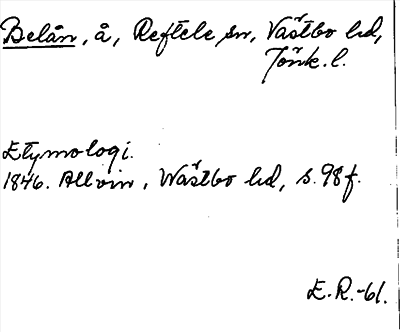 Belån, å, Reftele sn, Västbo hd,
Jönk. l.
Etymologi.
1846. Allvin, Wästbo hd, s. 98 f.
E. R. -61.